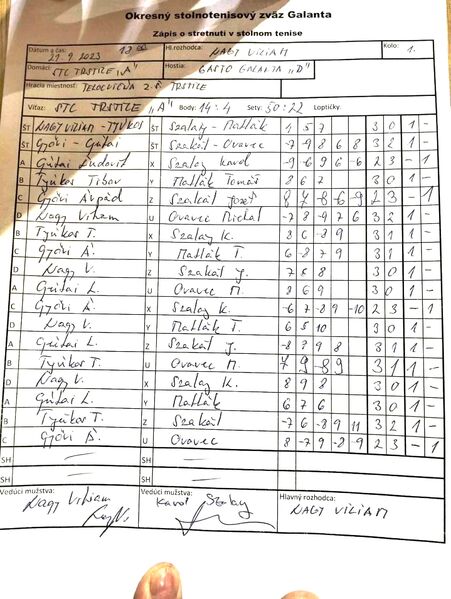 Okresný stolnotenisový zväz Galanta
Zápis o stretnutí v stolnom tenise
Dátum a čas: 21.9.2023 12 00 Hl.rozhodca: NAGY VILIAM Kolo: 1.
Domáci: STC TRSTICE "A" Hostia: GASTO GALANTA "D"
Hracia miestnosť: TELOCVIČŇA 2. Š. TRSTICE
Víťaz: STC TRSTICE "A" Body: 14:4 Sety: 50:22 Loptičky:
ŠT NAGY VILIAM - TYUKOS ŠT Szalay - Matlák 4 5 7 3 0 1 -
ŠT Gyóri - Gútai ŠT Szakál - Ovavec -7 -9 8 6 8 3 2 1 -
A Gútai Ľudovít X Szalay Karol -9 -6 9 6 -6 2 3 - 1
B Tyúkos Tibor Y Matlák Tomáš 8 6 7 3 0 1 -
C Gyóri Árpád Z Szakál Jozef 8 7 -8 -6 -9 2 3 - 1
D Nagy Viliam U Ovavec Michal -7 8 -9 7 6 3 2 1 -
B Tyúkos T. X Szalay K. 8 6 -8 9 3 1 1 -
C Gyóri Á. Y Matlák T. 6 -8 7 9 3 1 1 -
D Nagy V. Z Szakál J. 7 5 8 3 0 1 -
A Gútai L. U Ovavec M. 8 6 9 3 0 1 -
C Gyóri Á. X Szalay K. -6 7 -8 9 -10 2 3 - 1
D Nagy V. Y Matlák T. 6 5 10 3 0 1 -
A Gútai L. Z Szakál J. -8 7 9 8 3 1 1 -
B Tyúkos T. U Ovavec M. 7 9 -8 9 3 1 1 -
D Nagy V. X Szalay K. 8 9 8 3 0 1 -
A Gútai L. Y Matlák 6 7 6 3 0 1 -
B Tyúkos T. Z Szakál -7 6 -8 9 11 3 2 1 -
C Gyóri Á. U Ovavec 8 -7 9 -8 -9 2 3 - 1
SH — —
SH — —
Vedúci mužstva: Vedúci mužstva: Hlavný rozhodca:
Nagy Viliam Karol Szalay NAGY VILIAM